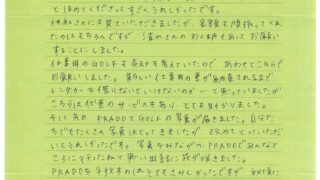 とほめてくださってすごくうれしかったです。
他社さんにも見ていただきましたが、査定も頑張ってくれ
たのはもちろんですが、清水さんのお人柄もあってお願い
することにしました。
仕事用のGOLFも売却を考えていたので、あわせてこちらで
お願いしました。新しい仕事用の車が納車されるまで
レンタカーを借りないといけないのがいと思っていましたが
こちらは代車のサービスもあり、とても助かりました。
そして先日 PRADOとGOLFの写真が届きました。自分た
ちでもたくさん写真はとってきましたが 改めてとっていただ
いてうれしかったです。写真をながめながらPRADOであんなと
ころに行ったねと思い出話に花が咲きました。
PRADOを手放すのはとてもさびしかったですが、